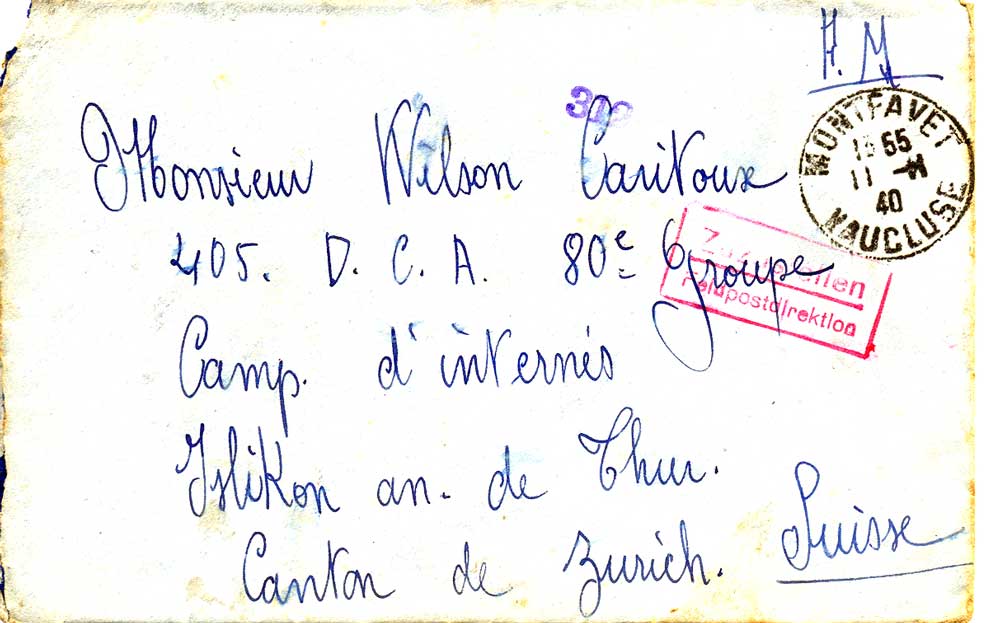 F. M
312
MONTFAVET
VAUCLUSE
15 55
11
40
Monsieur Wilson Caritoux
405. D. C. A. 80e Groupe
Feldpostdirektion
Camp. d'internés
Islikon an. de Thur.
Canton de Zurich. Suisse